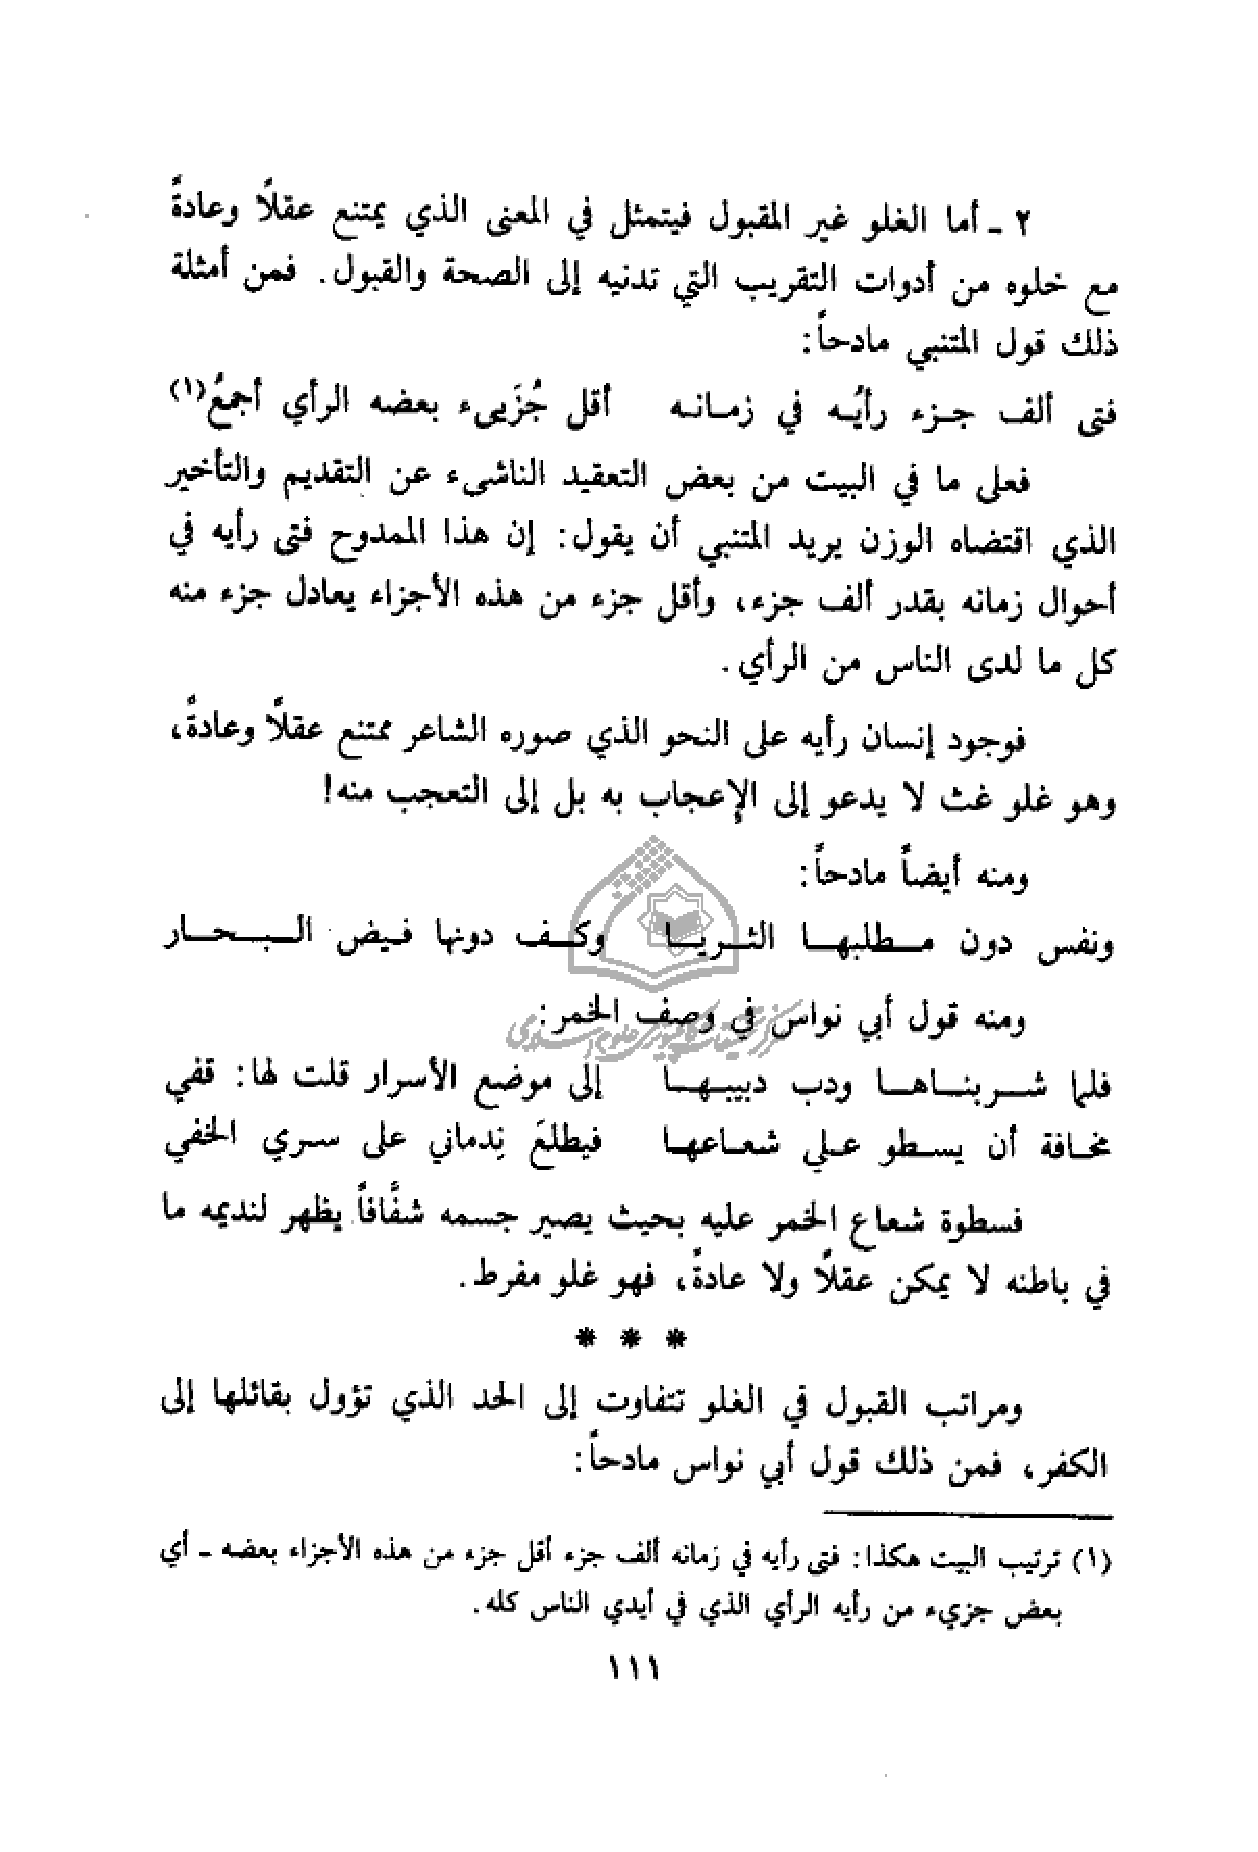 ٢ ـ أما الغلو غير المقبول فيتمثل في المعنى الذي يمتنع عقلًا وعادةً
مع خلوه من أدوات التقريب التي تدنيه إلى الصحة والقبول. فمن أمثلة
ذلك قول المتنبي مادحاً:
فتى ألف جـزء رأيُـه في زمـانـه أقل جُزَيىء بعضه الرأي أجمعُ(١)
فعلى ما في البيت من بعض التعقيد الناشىء عن التقديم والتأخير
الذي اقتضاه الوزن يريد المتنبي أن يقول: إن هذا الممدوح فتى رأيه في
أحوال زمانه بقدر ألف جزء، وأقل جزء من هذه الأجزاء يعادل جزء منه
كل ما لدى الناس من الرأي.
فوجود إنسان رأيه على النحو الذي صوره الشاعر ممتنع عقلًا وعادةً،
وهو غلو غث لا يدعو إلى الإعجاب به بل إلى التعجب منه!
ومنه أيضاً مادحاً:
ونفس دون مـطلبهـا الثـريـا وكـف دونها فـيض الـبـحـار
ومنه قول أبي نواس في وصف الخمر:
فلما شـربنـاهـا ودب دبيبـهـا إلى موضع الأسرار قلت لها: قفي
مخـافة أن يسـطو عـلي شعـاعهـا فيطلعَ نِدماني على سـري الخفي
فسطوة شعاع الخمر عليه بحيث يصير جسمه شفَّافاً يظهر لنديمه ما
في باطنه لا يمكن عقلًا ولا عادةً، فهو غلو مفرط.
* * *
ومراتب القبول في الغلو تتفاوت إلى الحد الذي تؤول بقائلها إلى
الكفر، فمن ذلك قول أبي نواس مادحاً:
(١) ترتيب البيت هكذا: فتى رأيه في زمانه ألف جزء أقل جزء من هذه الأجزاء بعضه ـ أي
بعض جزيء من رأيه الرأي الذي في أيدي الناس كله.
١١١